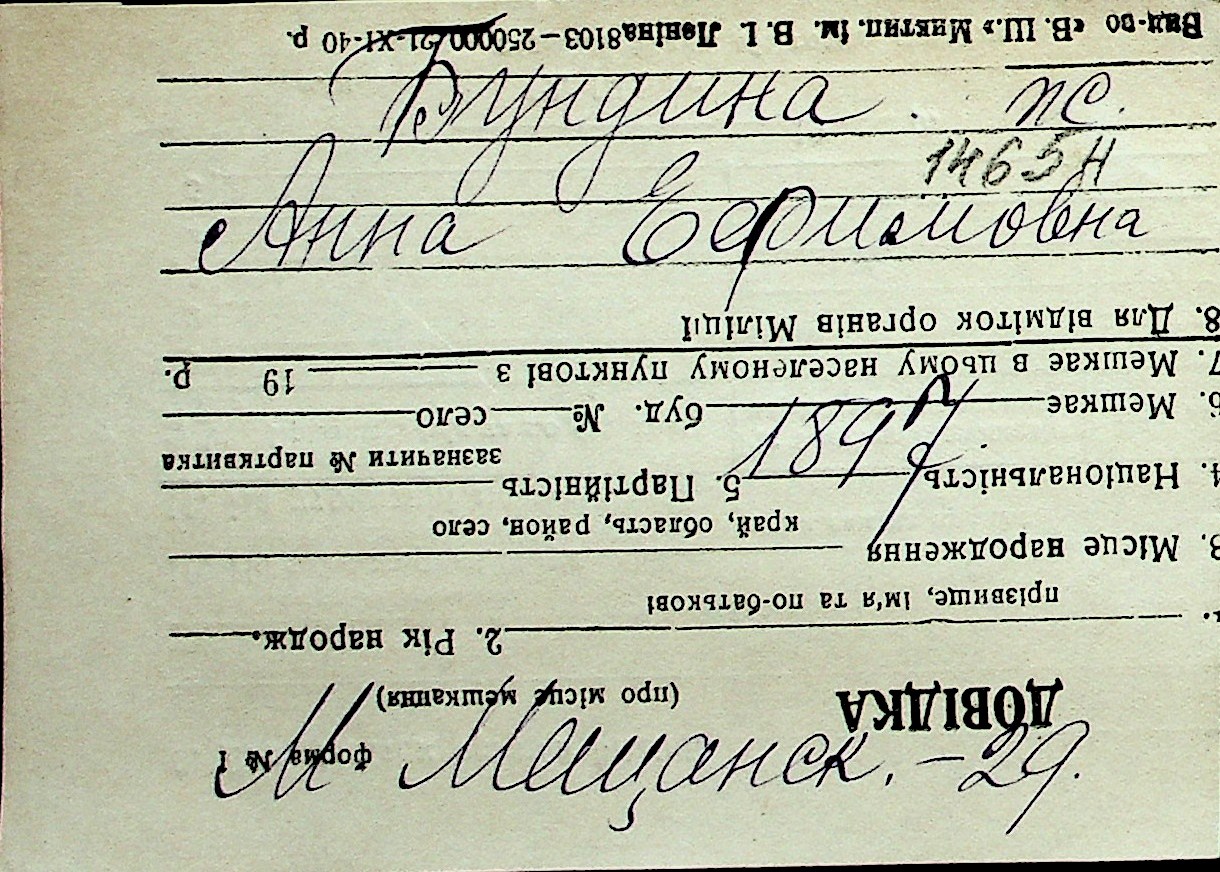 Бундина ж.
1465Н
Анна Ефимовна
1897
М Мещанск. – 29.
ДОВІДКА
(про місце мешкання)
форма № 1
2. Рік народж.
прізвище, ім'я та по-батькові
3. Місце народження
край, область, район, село
4. Національність 5. Партійність
зазначити № партквитка
6. Мешкає буд. № село
7. Мешкає в цьому населеному пунктові з 19 р.
8. Для відміток органів Міліції
Вид-во «В. Ш.» Миктип. ім. В. І. Леніна 8103–250000 21-XI-40 р.